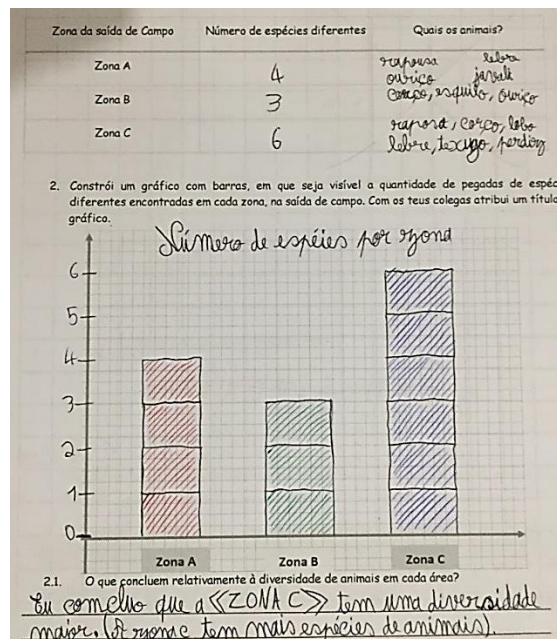 Zona da saída de Campo Número de espécies diferentes Quais os animais?
Zona A 4 rapousa lebre
ouriço javali
Zona B 3 corço, esquilo, ouriço
Zona C 6 raposa, corço, lobo
lebre, texugo, perdiz
2. Constrói um gráfico com barras, em que seja visível a quantidade de pegadas de espéc
diferentes encontradas em cada zona, na saída de campo. Com os teus colegas atribui um título
gráfico.
Número de espéies por zona
6
5
4
3
2
1
0
Zona A Zona B Zona C
2.1. O que concluem relativamente à diversidade de animais em cada área?
Eu comcluo que a «ZONA C» tem uma diversidade
maior. (A zona c tem mais espécies de animais).